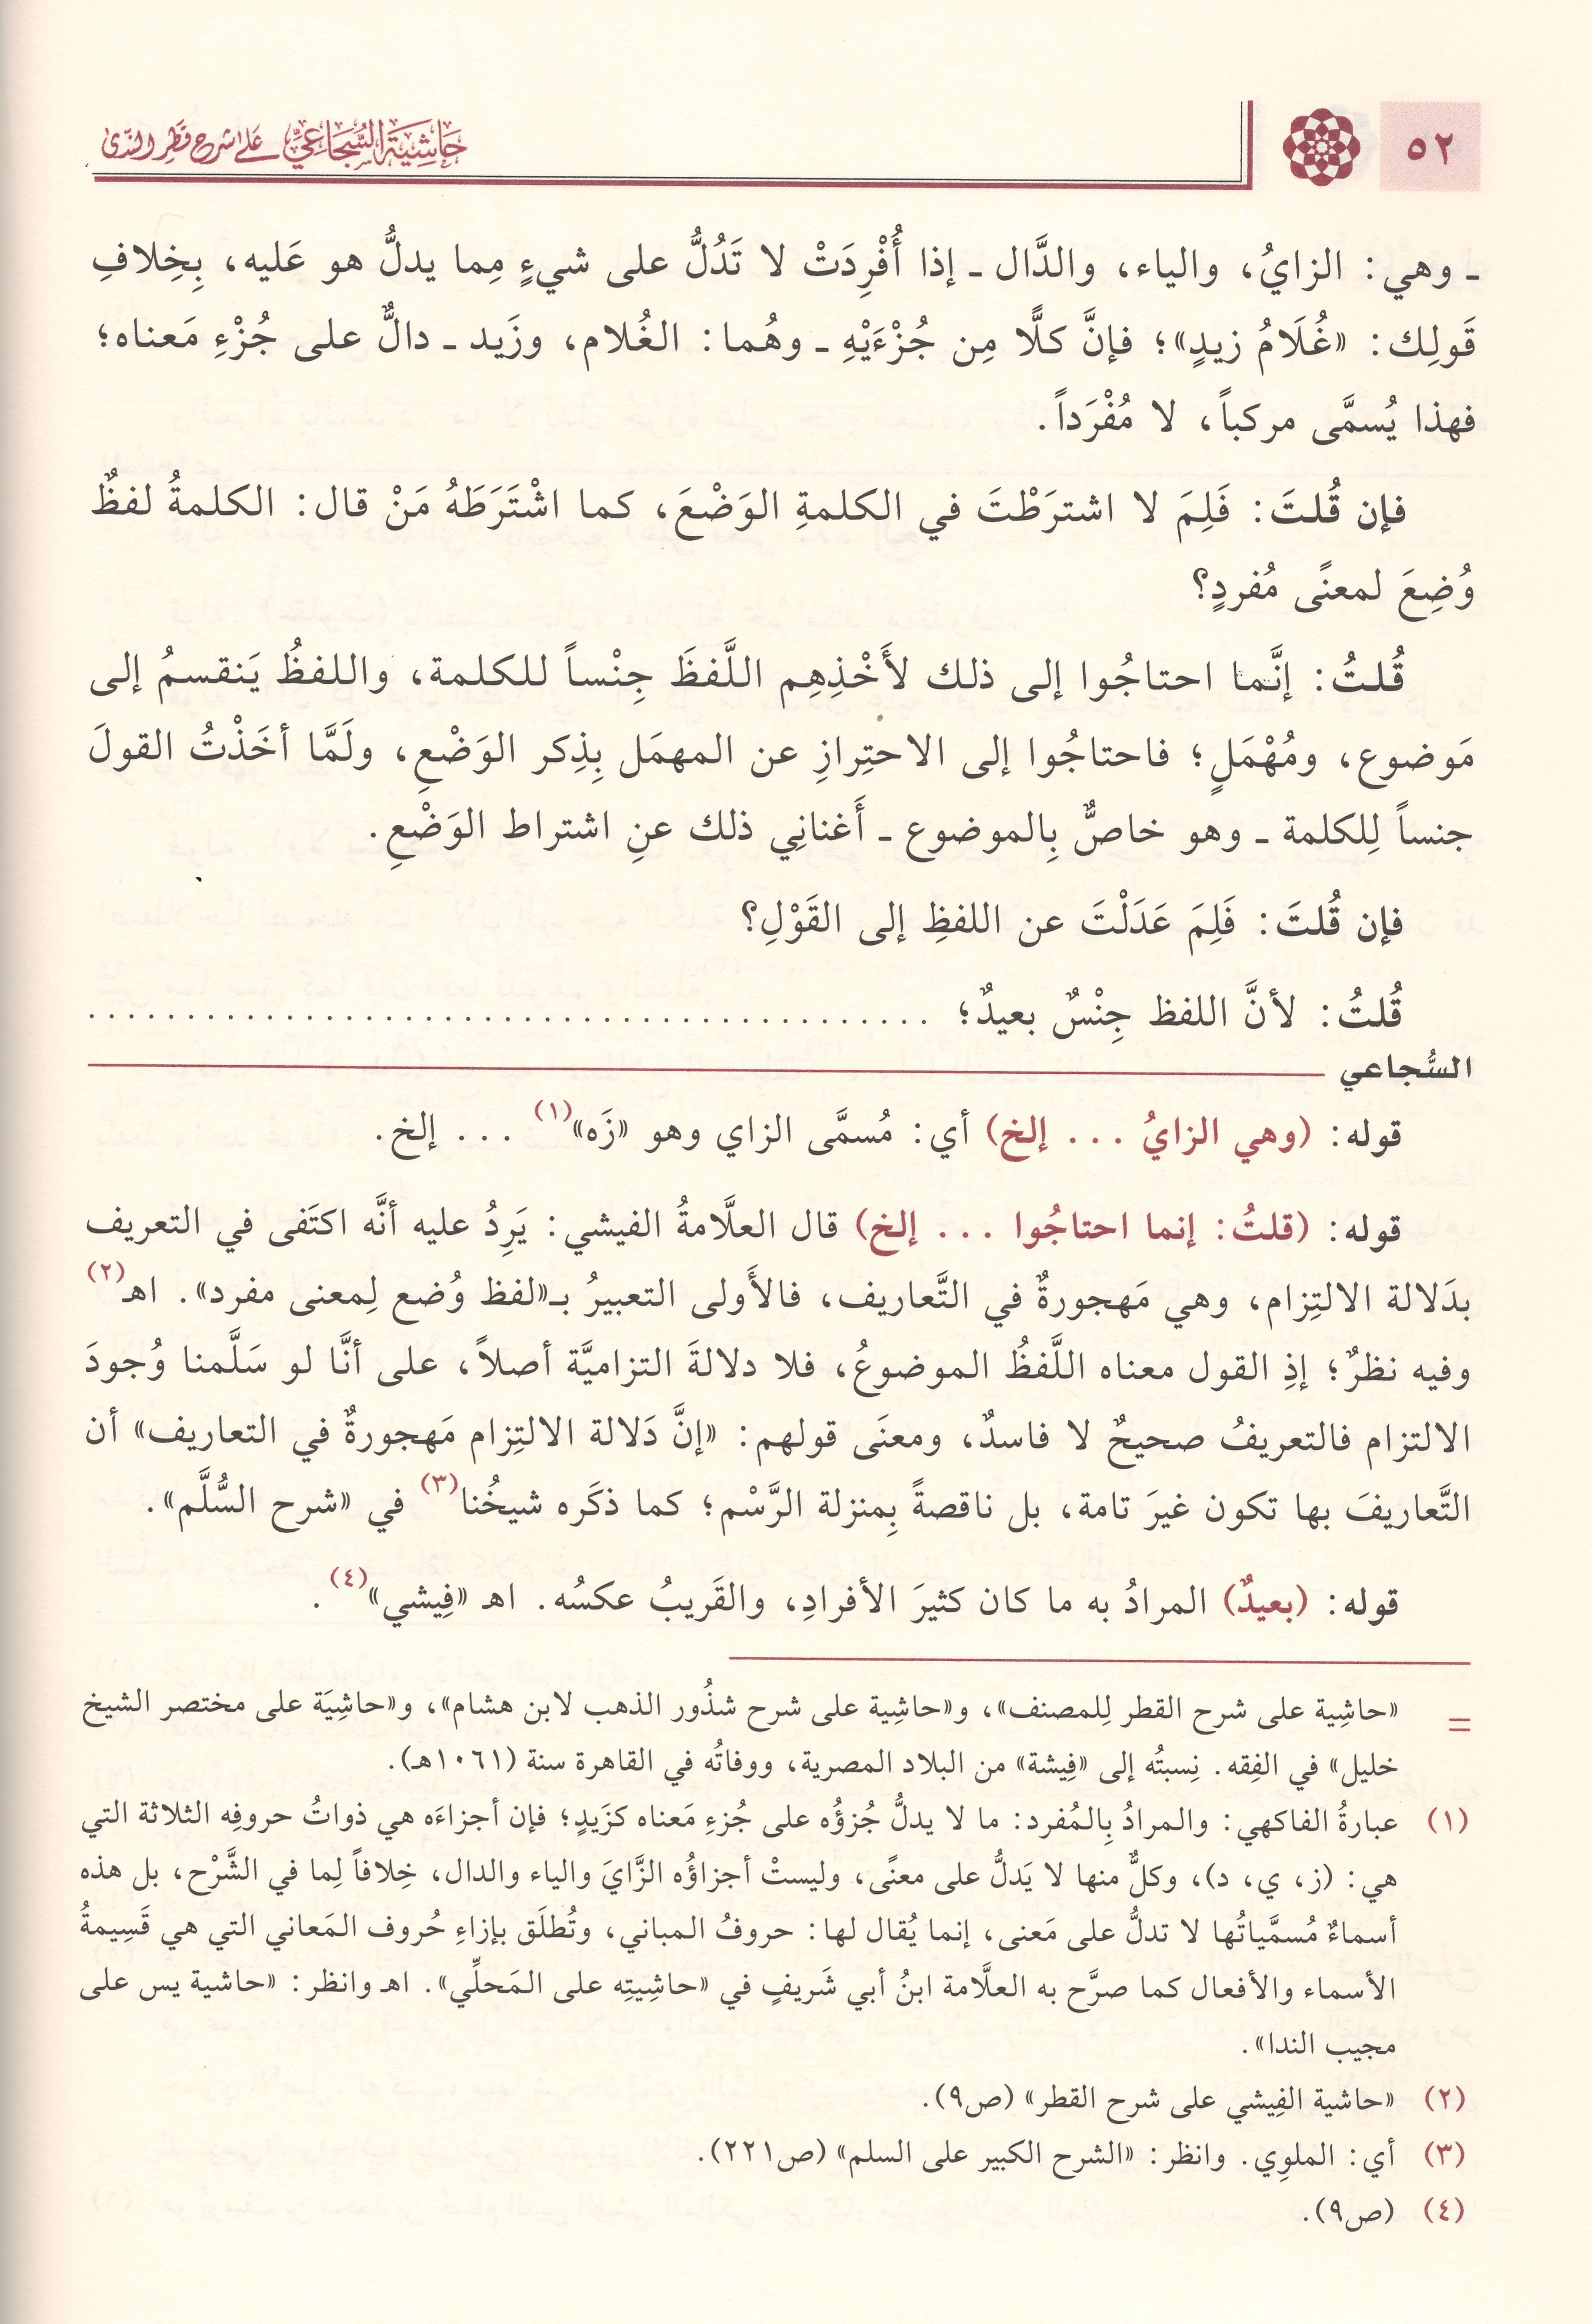 ٥٢
حَاشِيَة السُّجَاعِيِّ عَلَى شرح قَطْرِ النَّدَى
ـ وهي: الزايُ، والياء، والدَّال ـ إذا أُفْرِدَتْ لا تَدُلُّ على شيءٍ مِما يدلُّ هو عَليه، بِخِلافِ
قَولِك: «غُلَامُ زيدٍ»؛ فإنَّ كلًّا مِن جُزْءَيْهِ ـ وهُما: الغُلام، وزَيد ـ دالٌّ على جُزْءِ مَعناه؛
فهذا يُسمَّى مركباً، لا مُفْرَداً.
فإن قُلتَ: فَلِمَ لا اشترَطْتَ في الكلمةِ الوَضْعَ، كما اشْتَرَطَهُ مَنْ قال: الكلمةُ لفظٌ
وُضِعَ لمعنًى مُفردٍ؟
قُلتُ: إنَّما احتاجُوا إلى ذلك لأَخْذِهِم اللَّفظَ جِنْساً للكلمة، واللفظُ يَنقسمُ إلى
مَوضوع، ومُهْمَلٍ؛ فاحتاجُوا إلى الاحتِرازِ عن المهمَل بِذِكر الوَضْعِ، ولَمَّا أخَذْتُ القولَ
جنساً لِلكلمة ـ وهو خاصٌّ بِالموضوع ـ أَغنانِي ذلك عنِ اشتراط الوَضْعِ.
فإن قُلتَ: فَلِمَ عَدَلْتَ عن اللفظِ إلى القَوْلِ؟
قُلتُ: لأنَّ اللفظ جِنْسٌ بعيدٌ؛ ..........................................
السُّجاعي
قوله: (وهي الزايُ ... إلخ) أي: مُسمَّى الزاي وهو «زَه»(١) ... إلخ.
قوله: (قلتُ: إنما احتاجُوا ... إلخ) قال العلَّامةُ الفيشي: يَرِدُ عليه أنَّه اكتَفى في التعريف
بدَلالة الالتِزام، وهي مَهجورةٌ في التَّعاريف، فالأَولى التعبيرُ بـ«لفظ وُضع لِمعنى مفرد». اهـ(٢)
وفيه نظرٌ؛ إذِ القول معناه اللَّفظُ الموضوعُ، فلا دلالةَ التزاميَّة أصلاً، على أنَّا لو سَلَّمنا وُجودَ
الالتزام فالتعريفُ صحيحٌ لا فاسدٌ، ومعنَى قولهم: «إنَّ دَلالة الالتِزام مَهجورةٌ في التعاريف» أن
التَّعاريفَ بها تكون غيرَ تامة، بل ناقصةً بِمنزلة الرَّسْم؛ كما ذكَره شيخُنا(٣) في «شرح السُّلَّم».
قوله: (بعيدٌ) المرادُ به ما كان كثيرَ الأفرادِ، والقَريبُ عكسُه. اهـ «فِيشي»(٤).
= «حاشِية على شرح القطر لِلمصنف»، و«حاشِية على شرح شذُور الذهب لابن هشام»، و«حاشِيَة على مختصر الشيخ
خليل» في الفِقه. نِسبتُه إلى «فِيشة» من البلاد المصرية، ووفاتُه في القاهرة سنة (١٠٦١هـ).
(١) عبارةُ الفاكهي: والمرادُ بِالمُفرد: ما لا يدلُّ جُزؤُه على جُزءِ مَعناه كزَيدٍ؛ فإن أجزاءَه هي ذواتُ حروفِه الثلاثة التي
هي: (ز، ي، د)، وكلٌّ منها لا يَدلُّ على معنًى، وليستْ أجزاؤُه الزَّايَ والياء والدال، خِلافاً لِما في الشَّرْح، بل هذه
أسماءٌ مُسمَّياتُها لا تدلُّ على مَعنى، إنما يُقال لها: حروفُ المباني، وتُطلَق بإزاءِ حُروف المَعاني التي هي قَسِيمةُ
الأسماء والأفعال كما صرَّح به العلَّامة ابنُ أبي شَريفٍ في «حاشِيتِه على المَحلِّي». اهـ وانظر: «حاشية يس على
مجيب الندا».
(٢) «حاشية الفِيشي على شرح القطر» (ص٩).
(٣) أي: الملوِي. وانظر: «الشرح الكبير على السلم» (ص٢٢١).
(٤) (ص٩).